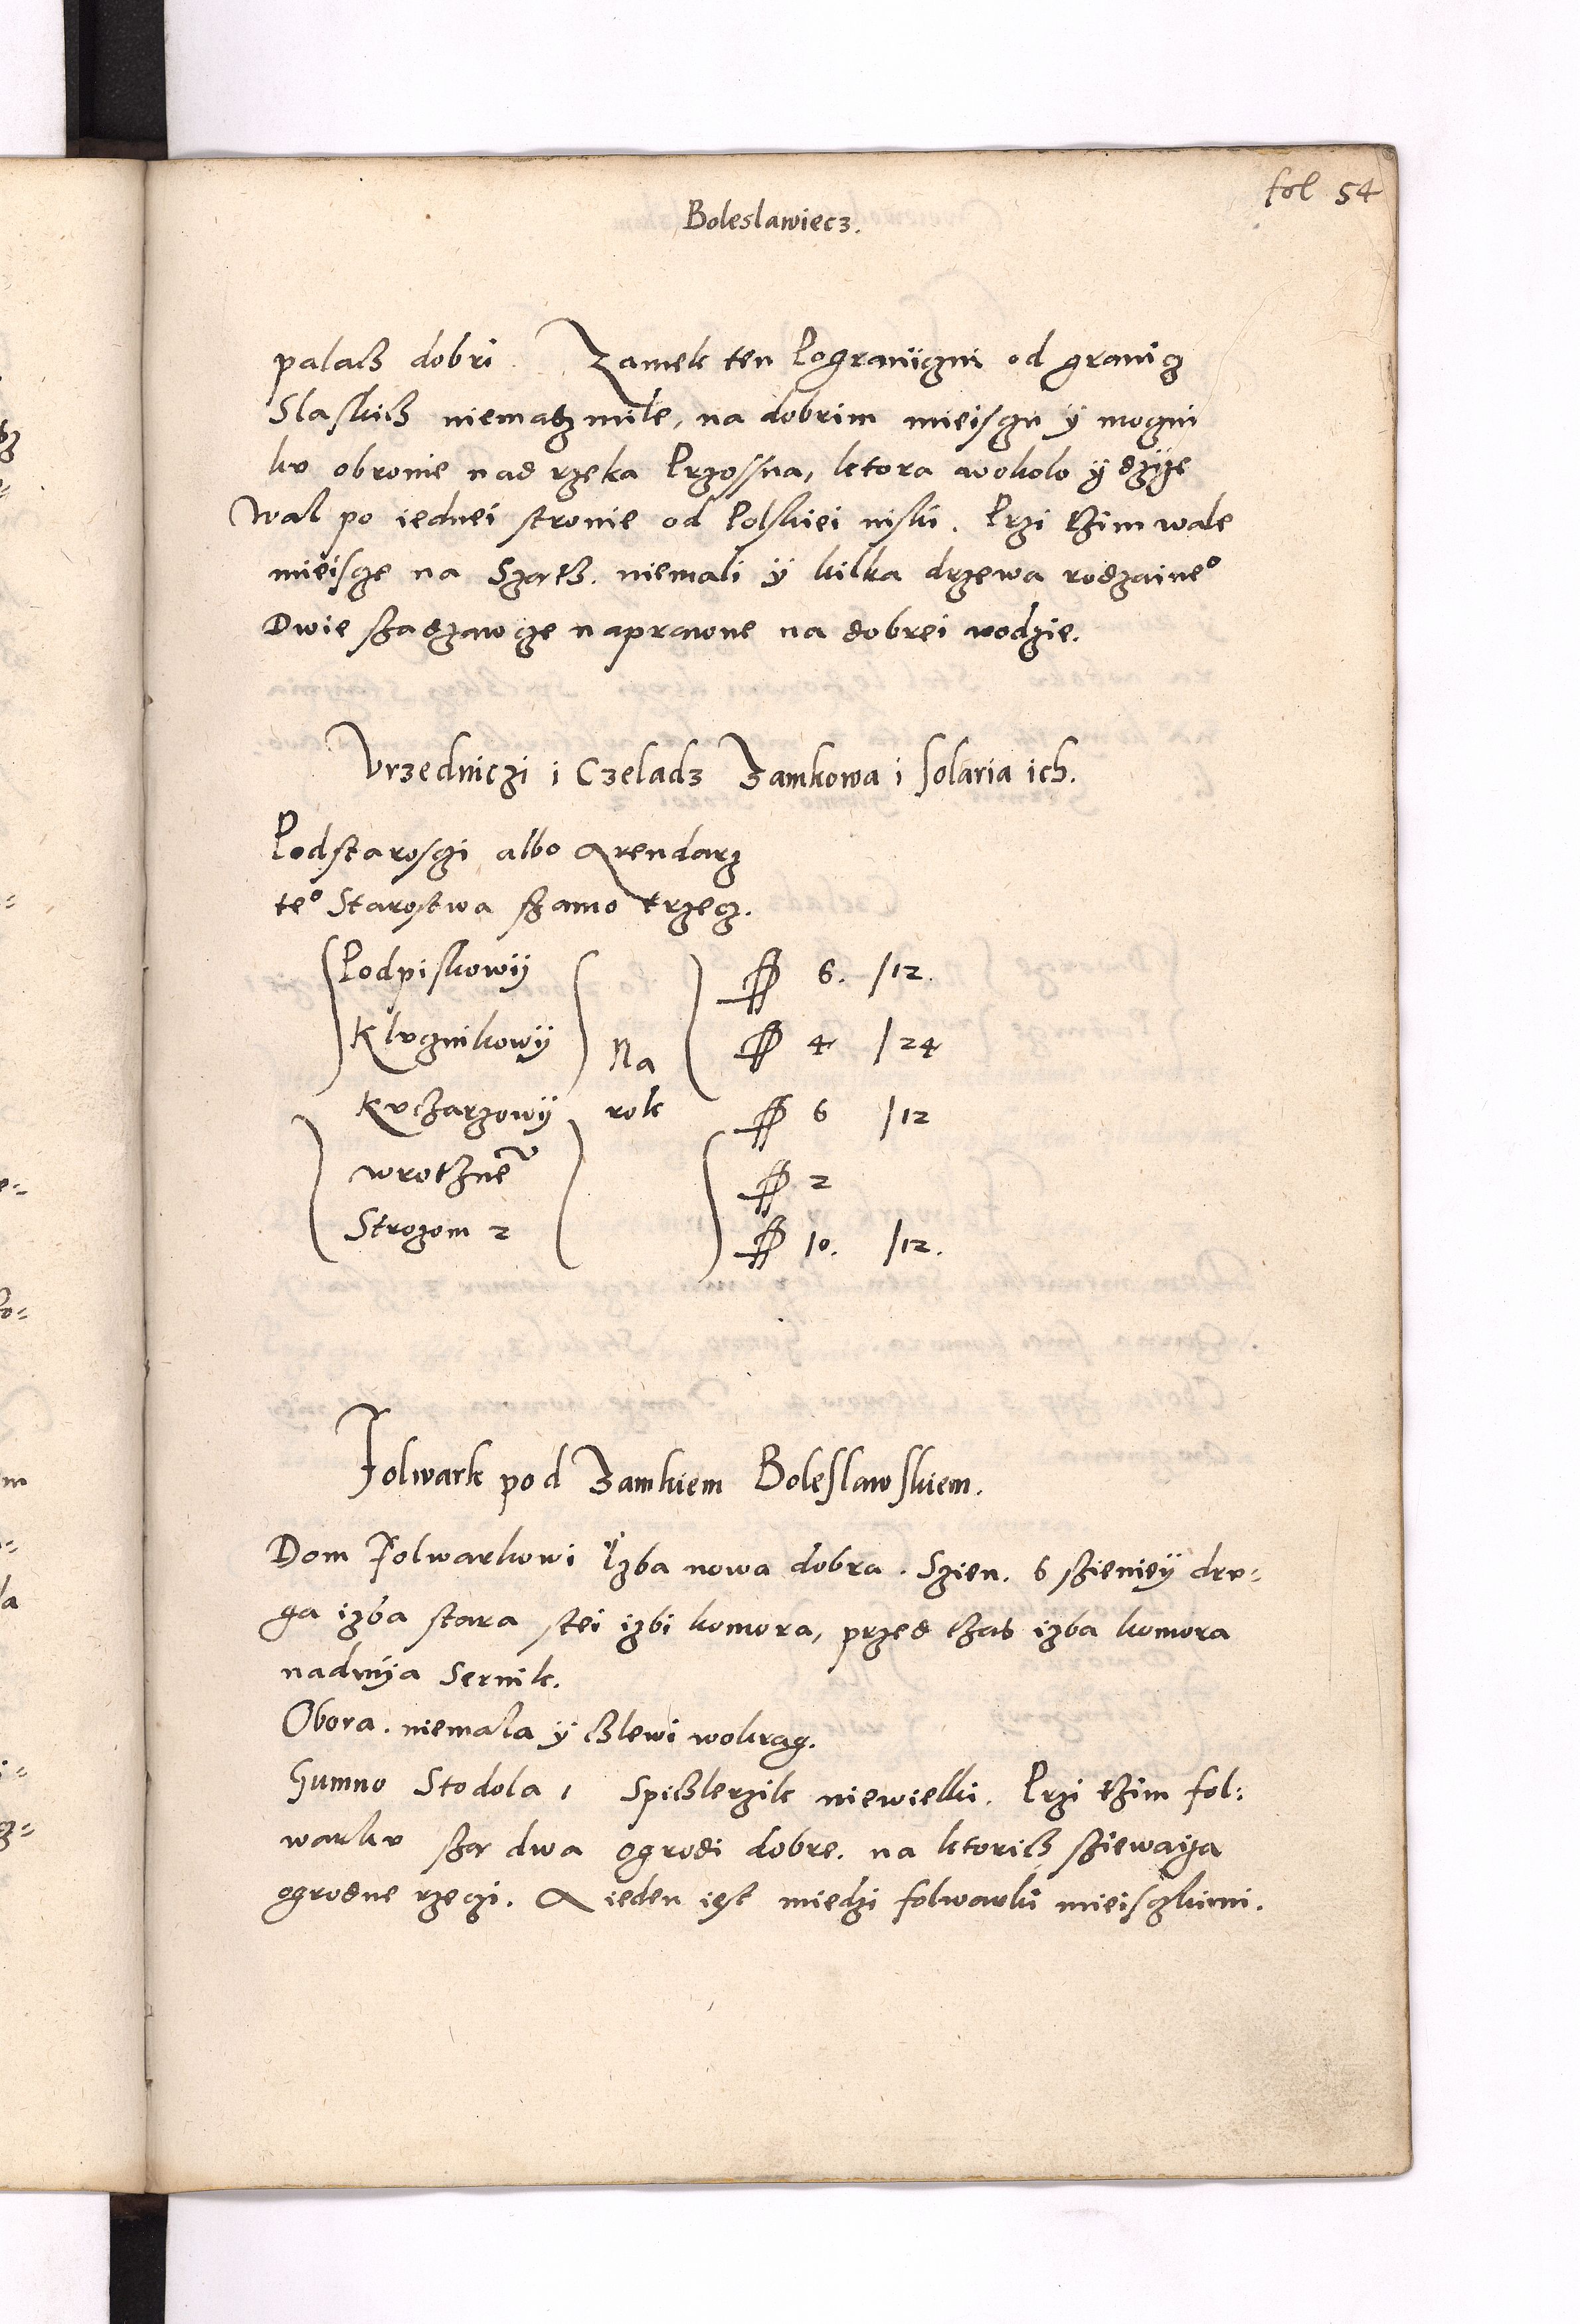 fol 54
Boleslawiecz.
palacz dobri. Zamek ten Pograniczni od granicz
Slaskich niemasz mile, na dobrim mieisczu ÿ mocgni
kv obronie nad rzeka Przossna, ktora wokolo ÿ dzÿe
Wal po iednei stronie od Polskiei niski. Przi thim wale
mieiscze na Szath. niemali ÿ kilka drzewa rodzaineº
Dwie szadzawcze naprawne na dobrei wodzie.
Vrzedniczi i Czeladz Zamkowa i Solaria ich.
Podstarosczi albo Arendarz
teº Starostwa szamo trzecz.
Podpiskowÿ 6. /12.
Klvcznikowÿ Na 4 /24
Kvcharzowÿ rok 6 /12
wrothneº 2
Strozom 2 10. /12.
Folwark pod Zamkiem Boleslawskiem.
Dom Folwarkowi Izba nowa dobra. Szien. 6 szieniey drv-
ga izba stara stei izbi komora, przed thab izba komora
nadnÿa Sernik.
Obora. niemala ÿ chlewi wokrag.
Gumno Stodola 1 Spichlerzik niewielki. Przi thim fol:
warkv sza dwa ogrodi dobre. na ktorich sziewaÿa
ogrodne rzeczi. A ieden iest miedzi folwarki mieisczkimi.